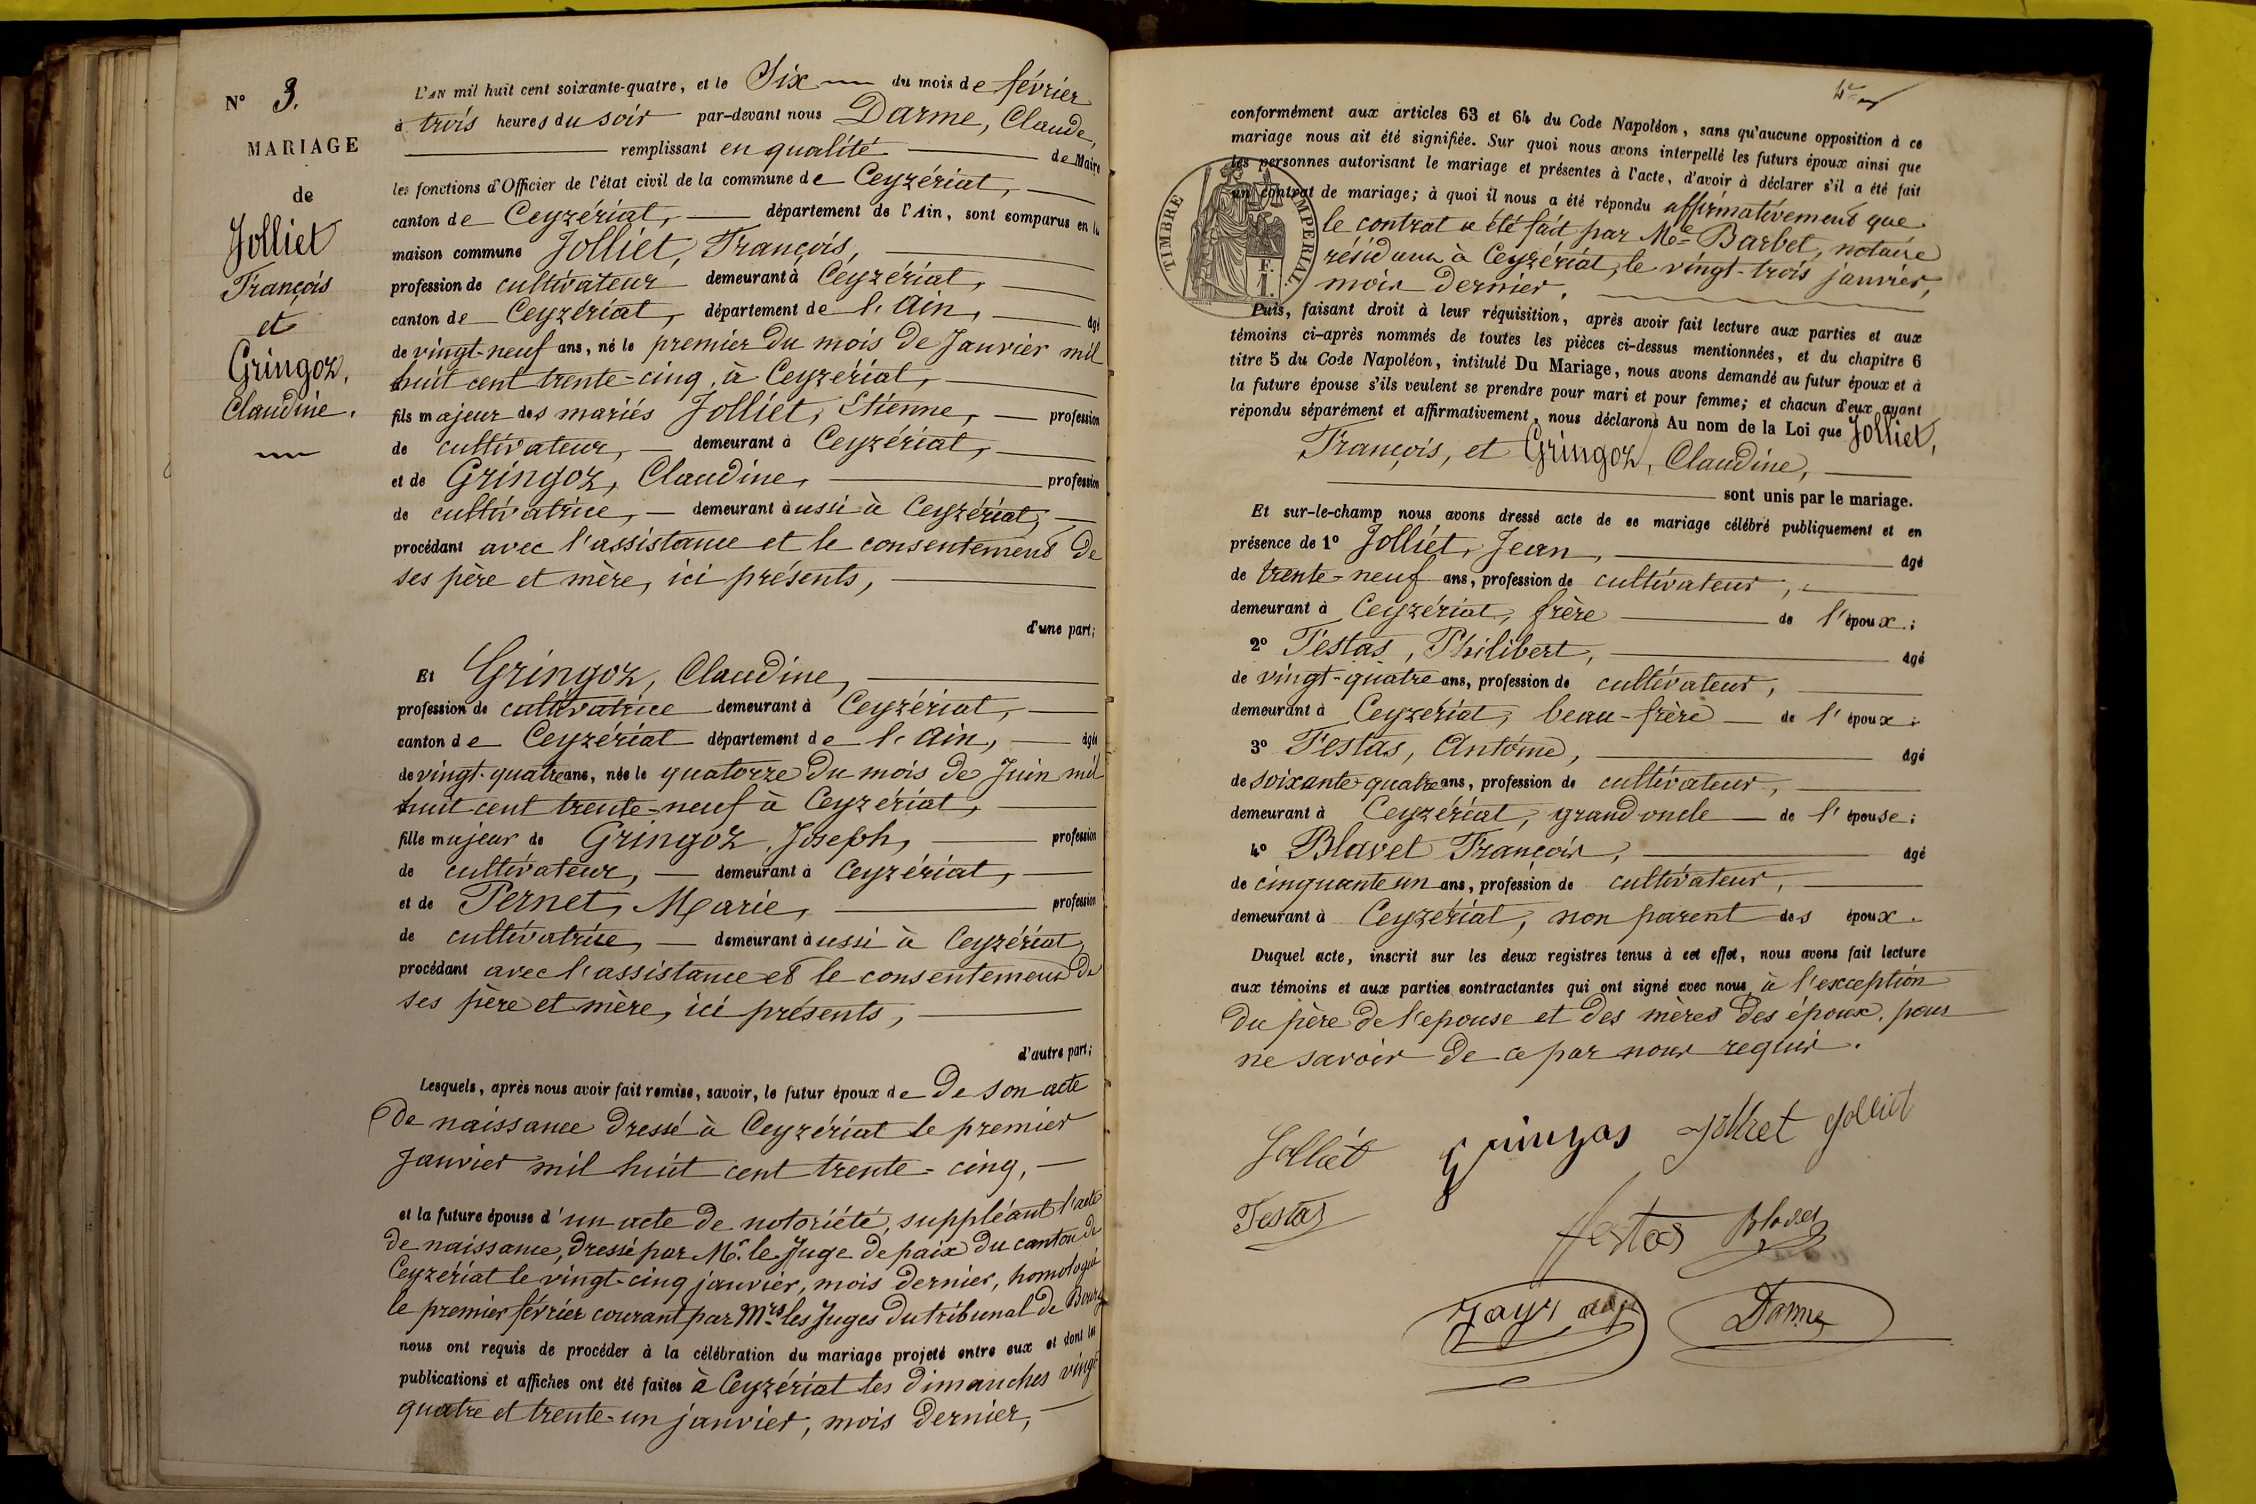 N° 3.
MARIAGE
de
Jolliet
François
et
Gringoz,
Claudine.
L'AN mil huit cent soixante-quatre, et le Six du mois de février
à trois heures du soir par-devant nous Darme, Claude,
remplissant en qualité de Maire
les fonctions d'Officier de l'état civil de la commune de Ceyzériat,
canton de Ceyzériat, département de l'Ain, sont comparus en la
maison commune Jolliet, François,
profession de cultivateur demeurant à Ceyzériat,
canton de Ceyzériat, département de l'Ain, âgé
de vingt-neuf ans, né le premier du mois de Janvier mil
huit cent trente-cinq, à Ceyzériat,
fils majeur des mariés Jolliet, Etienne, profession
de cultivateur, demeurant à Ceyzériat,
et de Gringoz, Claudine, profession
de cultivatrice, demeurant aussi à Ceyzériat,
procédant avec l'assistance et le consentement de
ses père et mère, ici présents,
d'une part;
Et Gringoz, Claudine,
profession de cultivatrice demeurant à Ceyzériat,
canton de Ceyzériat département de l'Ain, âgée
de vingt-quatre ans, née le quatorze du mois de Juin mil
huit cent trente-neuf à Ceyzériat,
fille majeur de Gringoz, Joseph, profession
de cultivateur, demeurant à Ceyzériat,
et de Pernet, Marie, profession
de cultivatrice, demeurant aussi à Ceyzériat,
procédant avec l'assistance et le consentement de
ses père et mère, ici présents,
d'autre part;
Lesquels, après nous avoir fait remise, savoir, le futur époux de De son acte
de naissance dressé à Ceyzériat le premier
Janvier mil huit cent trente-cinq,
et la future épouse d'un acte de notoriété, suppléant l'acte
de naissance, dressé par Mr. le Juge de paix du canton de
Ceyzériat le vingt-cinq janvier, mois dernier, homologué
le premier février courant par Mrs les Juges du tribunal de Bourg
nous ont requis de procéder à la célébration du mariage projeté entre eux et dont les
publications et affiches ont été faites à Ceyzériat les dimanches vingt
quatre et trente-un janvier, mois dernier,
conformément aux articles 63 et 64 du Code Napoléon, sans qu'aucune opposition à ce
mariage nous ait été signifiée. Sur quoi nous avons interpellé les futurs époux ainsi que
les personnes autorisant le mariage et présentes à l'acte, d'avoir à déclarer s'il a été fait
un contrat de mariage; à quoi il nous a été répondu affirmativement que
le contrat a été fait par Me Barbet, notaire
résidant à Ceyzériat, le vingt-trois janvier,
mois dernier.
TIMBRE IMPÉRIAL.
F.
1.
Puis, faisant droit à leur réquisition, après avoir fait lecture aux parties et aux
témoins ci-après nommés de toutes les pièces ci-dessus mentionnées, et du chapitre 6
titre 5 du Code Napoléon, intitulé Du Mariage, nous avons demandé au futur époux et à
la future épouse s'ils veulent se prendre pour mari et pour femme; et chacun d'eux ayant
répondu séparément et affirmativement, nous déclarons Au nom de la Loi que Jolliet,
François, et Gringoz, Claudine,
sont unis par le mariage.
Et sur-le-champ nous avons dressé acte de ce mariage célébré publiquement et en
présence de 1° Jolliet, Jean, âgé
de trente-neuf ans, profession de cultivateur,
demeurant à Ceyzériat, frère de l'époux;
2° Testas, Philibert, âgé
de vingt-quatre ans, profession de cultivateur,
demeurant à Ceyzériat, beau-frère de l'époux;
3° Testas, Antoine, âgé
de soixante-quatre ans, profession de cultivateur,
demeurant à Ceyzériat, grand oncle de l'épouse;
4° Blavet François, âgé
de cinquante un ans, profession de cultivateur,
demeurant à Ceyzériat, non parent des époux.
Duquel acte, inscrit sur les deux registres tenus à cet effet, nous avons fait lecture
aux témoins et aux parties contractantes qui ont signé avec nous, à l'exception
du père de l'epouse et des mères des époux, pour
ne savoir de ce par nous requis.
Jolliet Gringoz Jolliet Jolliet
Testas Testas Blavet
Darme